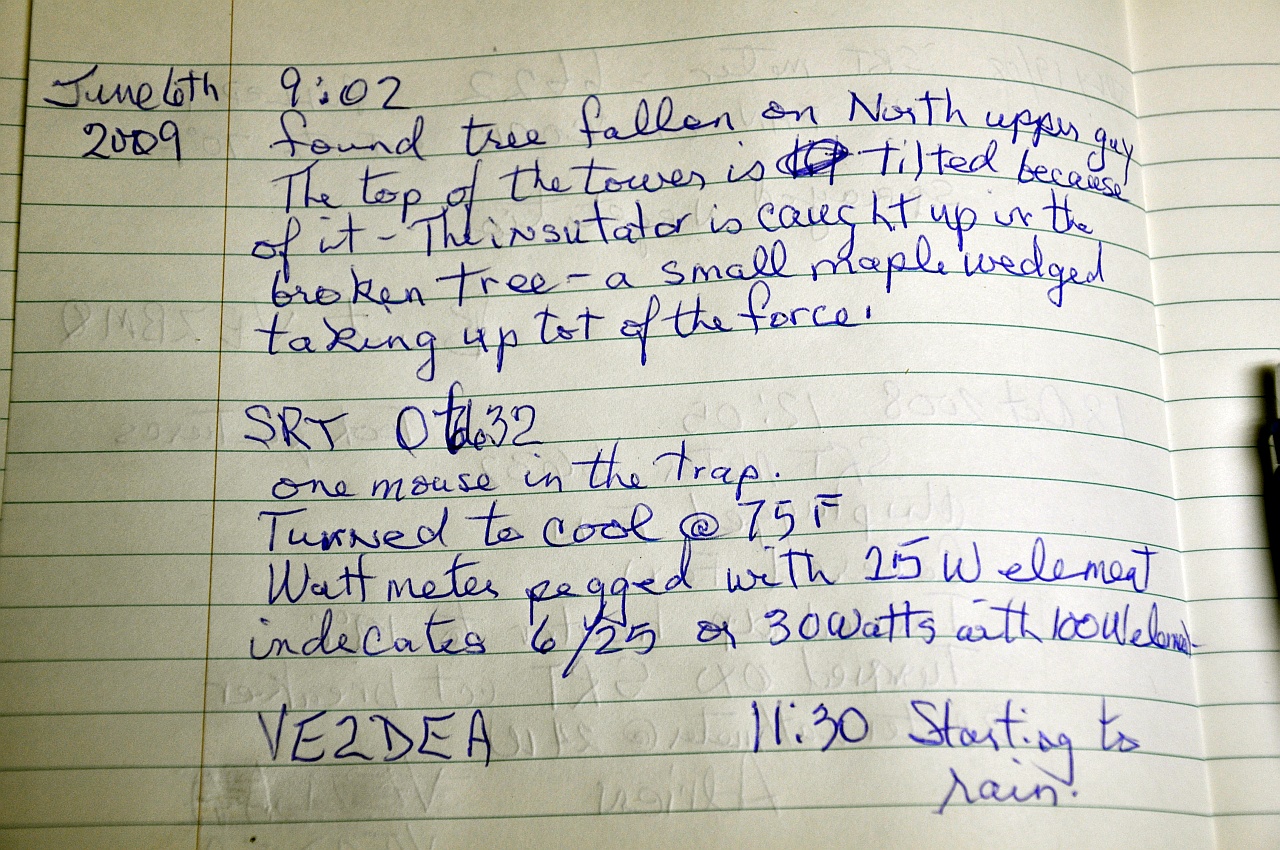 June 6th 9:02
2009 found tree fallen on North upper guy
The top of the tower is tilted because
of it - The insutator is caught up in the
broken tree - a small maple wedged
taking up tot of the force.
SRT
one mouse in the trap.
Turned to cool @ 75 F
Wattmeter pegged with 25 W element
indecates 6/25 or 30 watts with 100W element
VE2DEA 11:30 Starting to
rain.